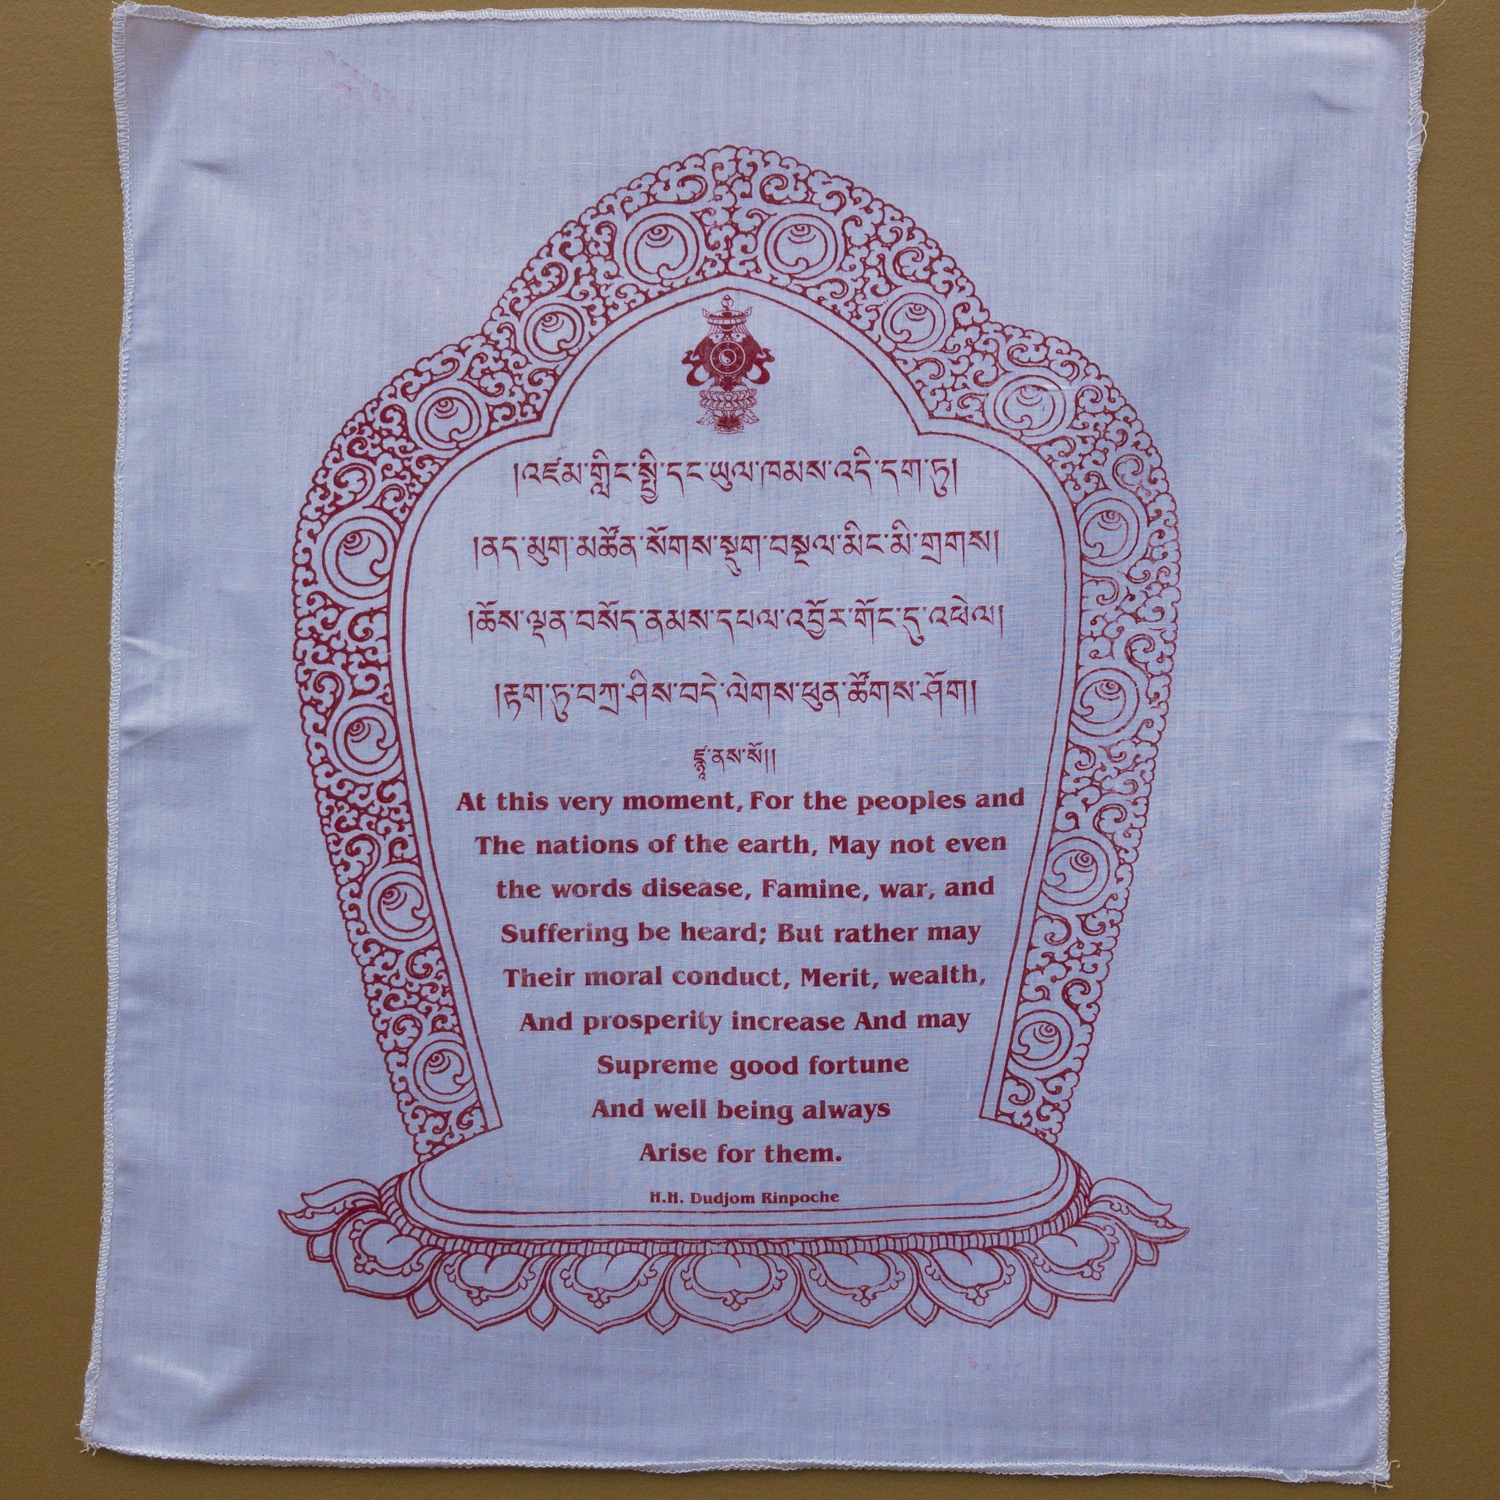 །འཛམ་གླིང་སྤྱི་དང་ཡུལ་ཁམས་འདི་དག་ཏུ།
།ནད་མུག་མཚོན་སོགས་སྡུག་བསྔལ་མིང་མི་གྲགས།
།ཆོས་ལྡན་བསོད་ནམས་དཔལ་འབྱོར་གོང་དུ་འཕེལ།
།རྟག་ཏུ་བཀྲ་ཤིས་བདེ་ལེགས་ཕུན་ཚོགས་ཤོག།
At this very moment, For the peoples and
The nations of the earth, May not even
the words disease, Famine, war, and
Suffering be heard; But rather may
Their moral conduct, Merit, wealth,
And prosperity increase And may
Supreme good fortune
And well being always
Arise for them.
H.H. Dudjom Rinpoche